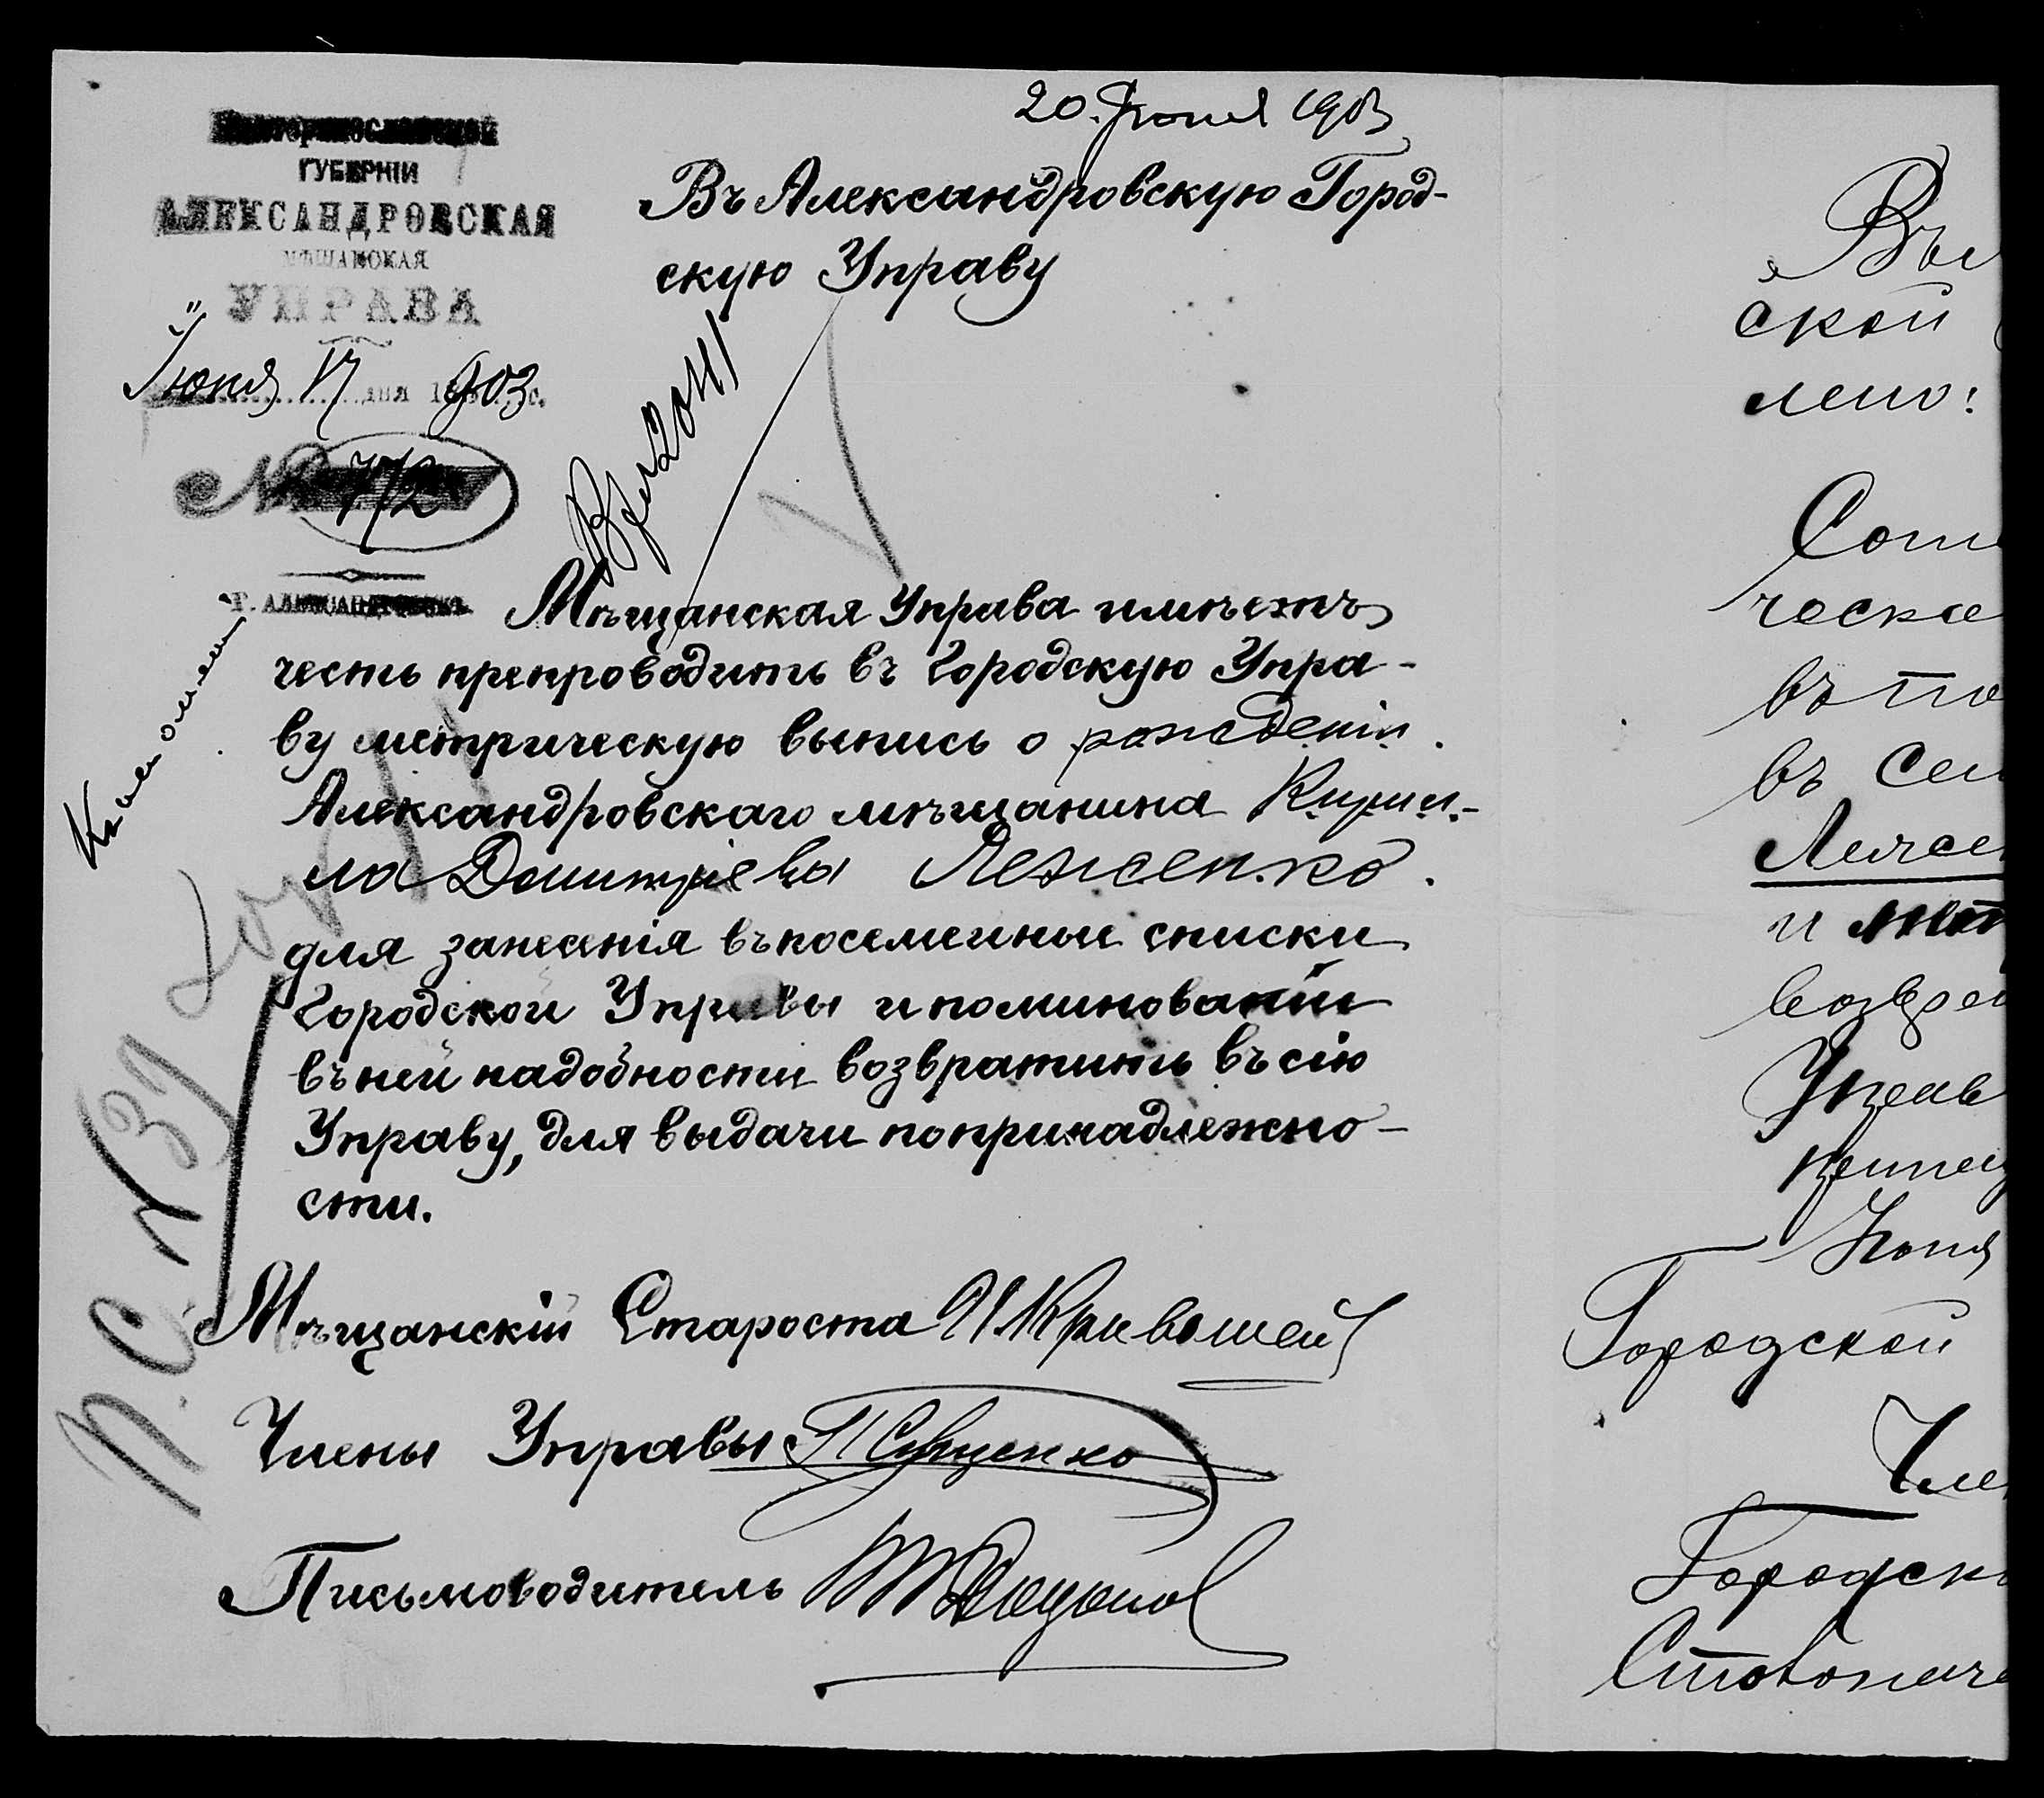 20. Іюня 1903
Екатеринославской
ГУБЕРНІИ
АЛЕКСАНДРОВСКАЯ
МѢЩАНСКАЯ
УПРАВА
Іюня 17 дня 1903 г.
№ 772
Г. АЛЕКСАНДРОВСКЪ
Въ Александровскую Город-
скую Управу
Вх 2041
Мѣщанская Управа имѣетъ
честь препроводить въ Городскую Упра-
ву метрическую выпись о рожденіи
Александровскаго мѣщанина Кирил-
ла Дмитріева Лежсенко.
для занесенія въ посемейные списки
Городской Управы и по миновапіи
въ ней надобности возвратить въ сію
Управу, для выдачи по принадлежно-
сти.
Мѣщанскій Староста И Кривошей
Члены Управы
Письмоводитель
П.С. № 39
ской
лено:
Сош
ческа
въ по
въ Сем
и мет
возвра
Управ
Іюня
Городской
Чле
Городск
Столонач